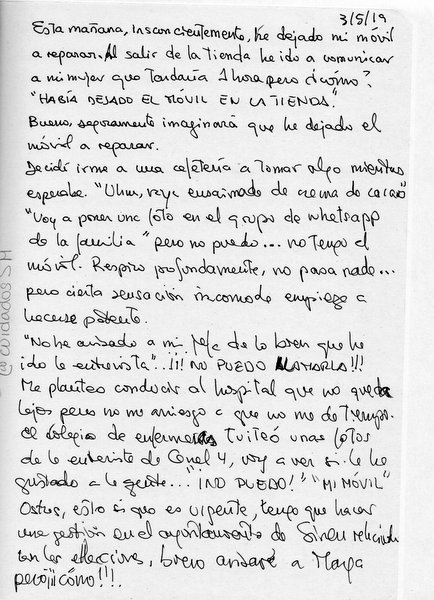 3/5/19
Esta mañana, insconcientemente, he dejado mi móvil
a reparar. Al salir de la tienda he ido a comunicar
a mi mujer que tardaría 1 hora pero ¿cómo?
"HABÍA DEJADO EL MÓVIL EN LA TIENDA."
Bueno, seguramente imaginará que he dejado el
móvil a reparar.
Decidí irme a una cafetería a tomar algo mientras
esperaba. "Uhm, vaya ensaimada de crema de cacao"
"Voy a poner una foto en el grupo de whatsapp
de la familia" pero no puedo... no tengo el
móvil. Respiro profundamente, no pasa nada...
pero cierta sensación incomoda empieza a
hacerse patente.
"No he avisado a mi de lo bien que he
ido la entrevista"..!!! NO PUEDO LLAMARLA!!!
Me planteo conducir al hospital que no queda
lejos pero no me arriesgo a que no me de tiempo.
El colegio de enfermería tuiteó unas fotos
de la entrevista de Canal 4, voy a ver si le ha
gustado a la gente... "¡NO PUEDO!" "MI MÓVIL"
Ostras, esto si que es urgente, tengo que hacer
una gestión en el ayuntamiento de Sineu
con las elecciones, bueno avisaré a
pero ¡¡¡cómo!!!.
@cuidados SM